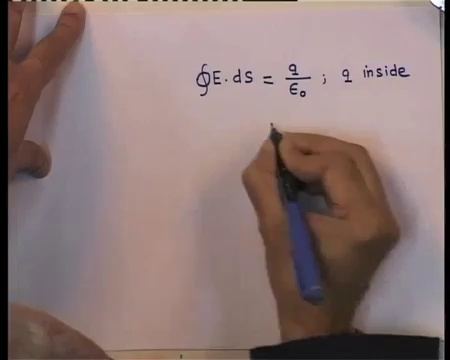 ∮E.dS = q/ϵ₀ ; q inside